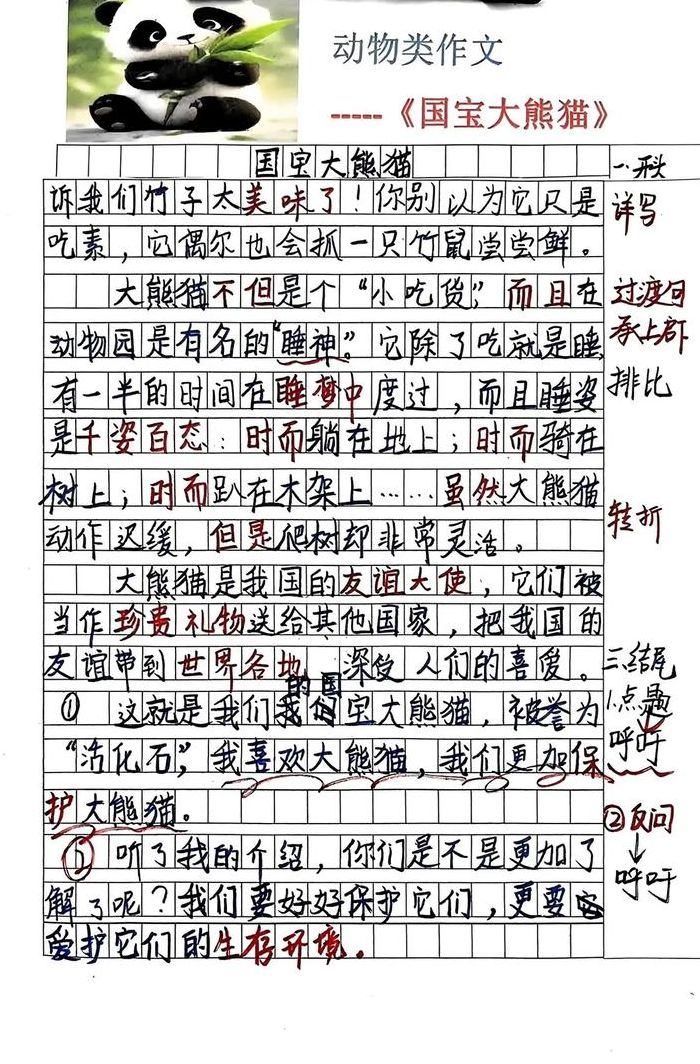 动物类作文
-----《国宝大熊猫》
国宝大熊猫
诉我们竹子太美味了！你别以为它只是
详写
吃素，它偶尔也会抓一只竹鼠尝尝鲜。
大熊猫不但是个“小吃货”，而且在
过渡句
动物园是有名的“睡神”。它除了吃就是睡，
承上启下
有一半的时间在睡梦中度过，而且睡姿
排比
是千姿百态：时而躺在地上；时而骑在
树上；时而趴在木架上……虽然大熊猫
转折
动作迟缓，但是爬树却非常灵活。
大熊猫是我国的友谊大使，它们被
当作珍贵礼物送给其他国家，把我国的
友谊带到世界各地，深受人们的喜爱。
三.结尾
① 这就是我们的国宝大熊猫，被誉为
1.点题
“活化石”，我喜欢大熊猫，我们更加保
呼吁
护大熊猫。
②反问
② 听了我的介绍，你们是不是更加了
↓
解了呢？我们要好好保护它们，更要
呼吁
爱护它们的生存环境。